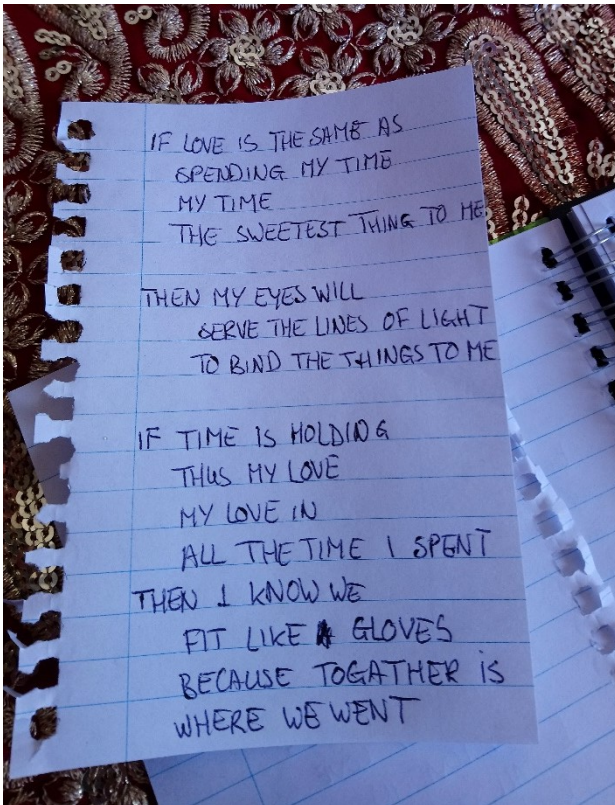 IF LOVE IS THE SAME AS
SPENDING MY TIME
MY TIME
THE SWEETEST THING TO ME
THEN MY EYES WILL
SERVE THE LINES OF LIGHT
TO BIND THE THINGS TO ME
IF TIME IS HOLDING
THUS MY LOVE
MY LOVE IN
ALL THE TIME I SPENT
THEN I KNOW WE
FIT LIKE GLOVES
BECAUSE TOGATHER IS
WHERE WE WENT